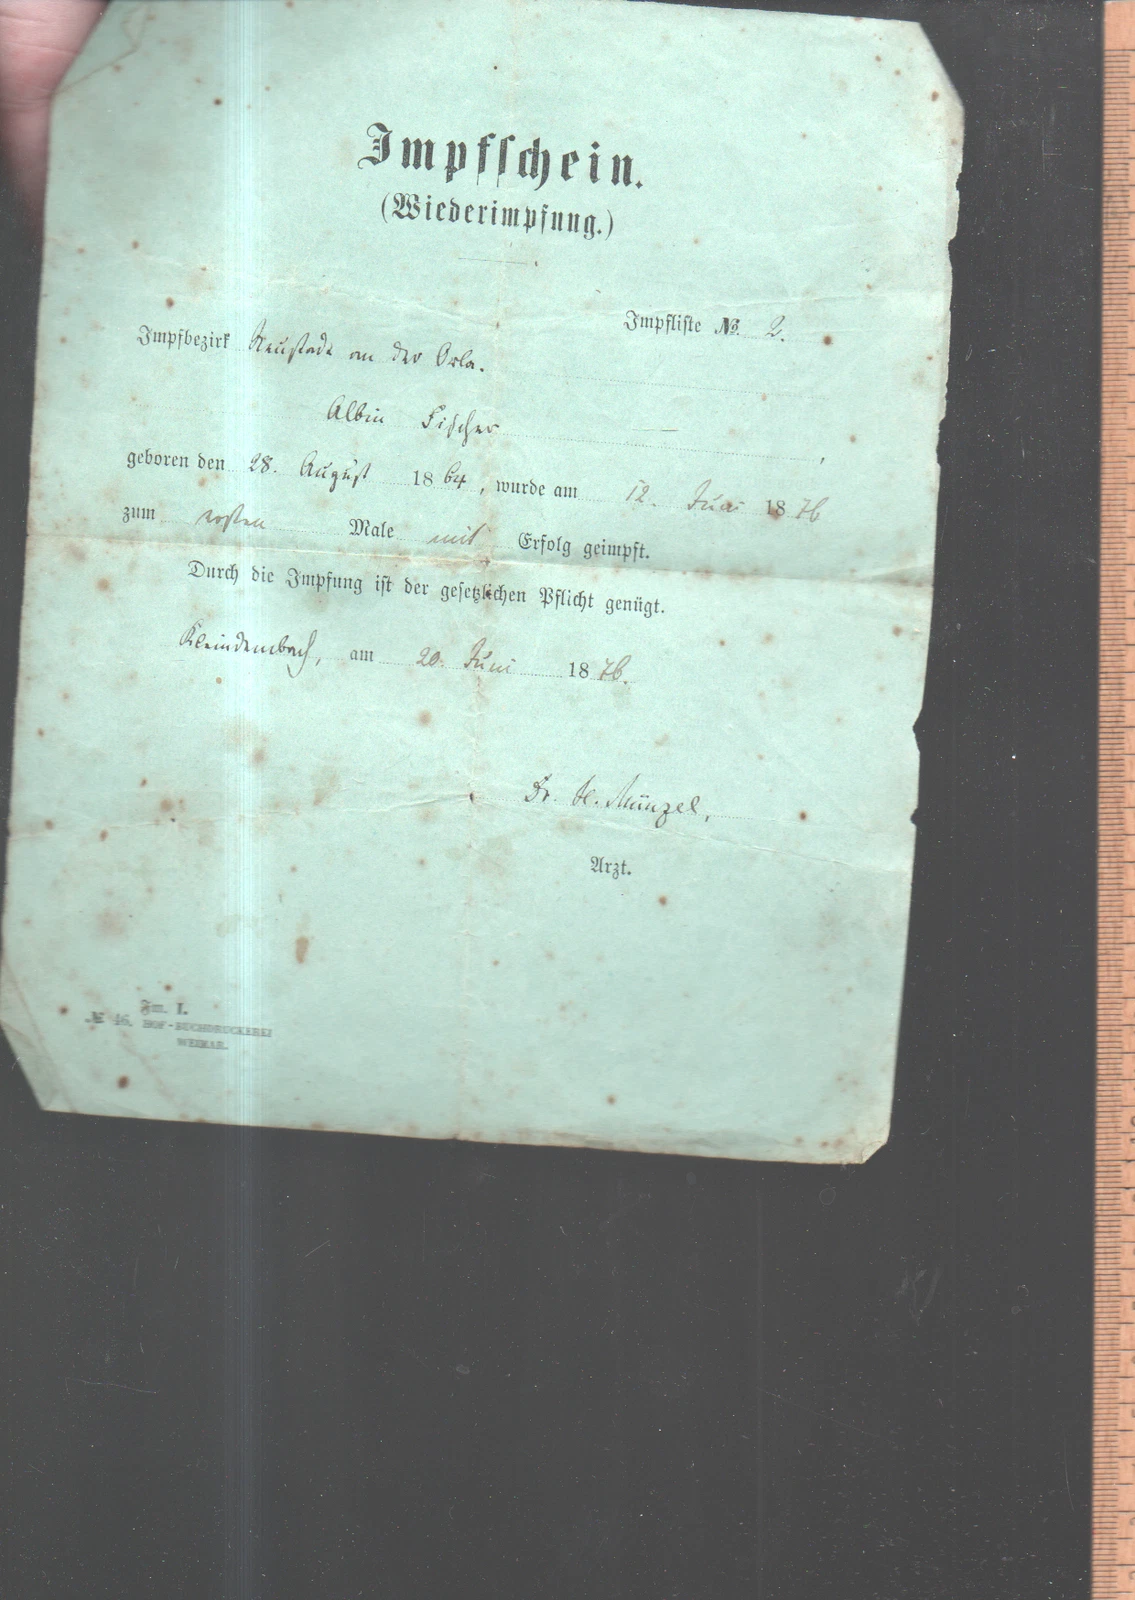 Impfschein.
(Wiederimpfung.)
Impfliste № 2.
Impfbezirk Neustadt an der Orla.
Albin Fischer,
geboren den 28. August 1864, wurde am 12. Juni 1876
zum ersten Male mit Erfolg geimpft.
Durch die Impfung ist der gesetzlichen Pflicht genügt.
Kleindembach, am 20. Juni 1876.
Dr. H. Münzel,
Arzt.
Fm. I.
№ 46. HOF-BUCHDRUCKEREI
WEIMAR.